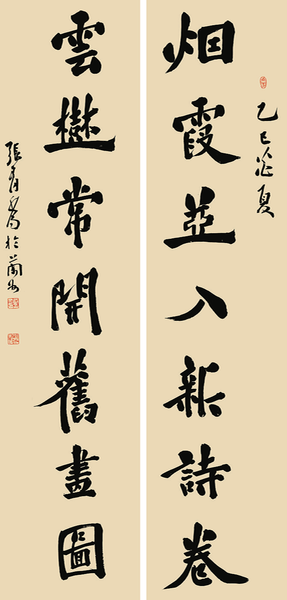 乙巳夏
烟霞並入新詩卷
雲樾常開舊畫圖
張於蘭州